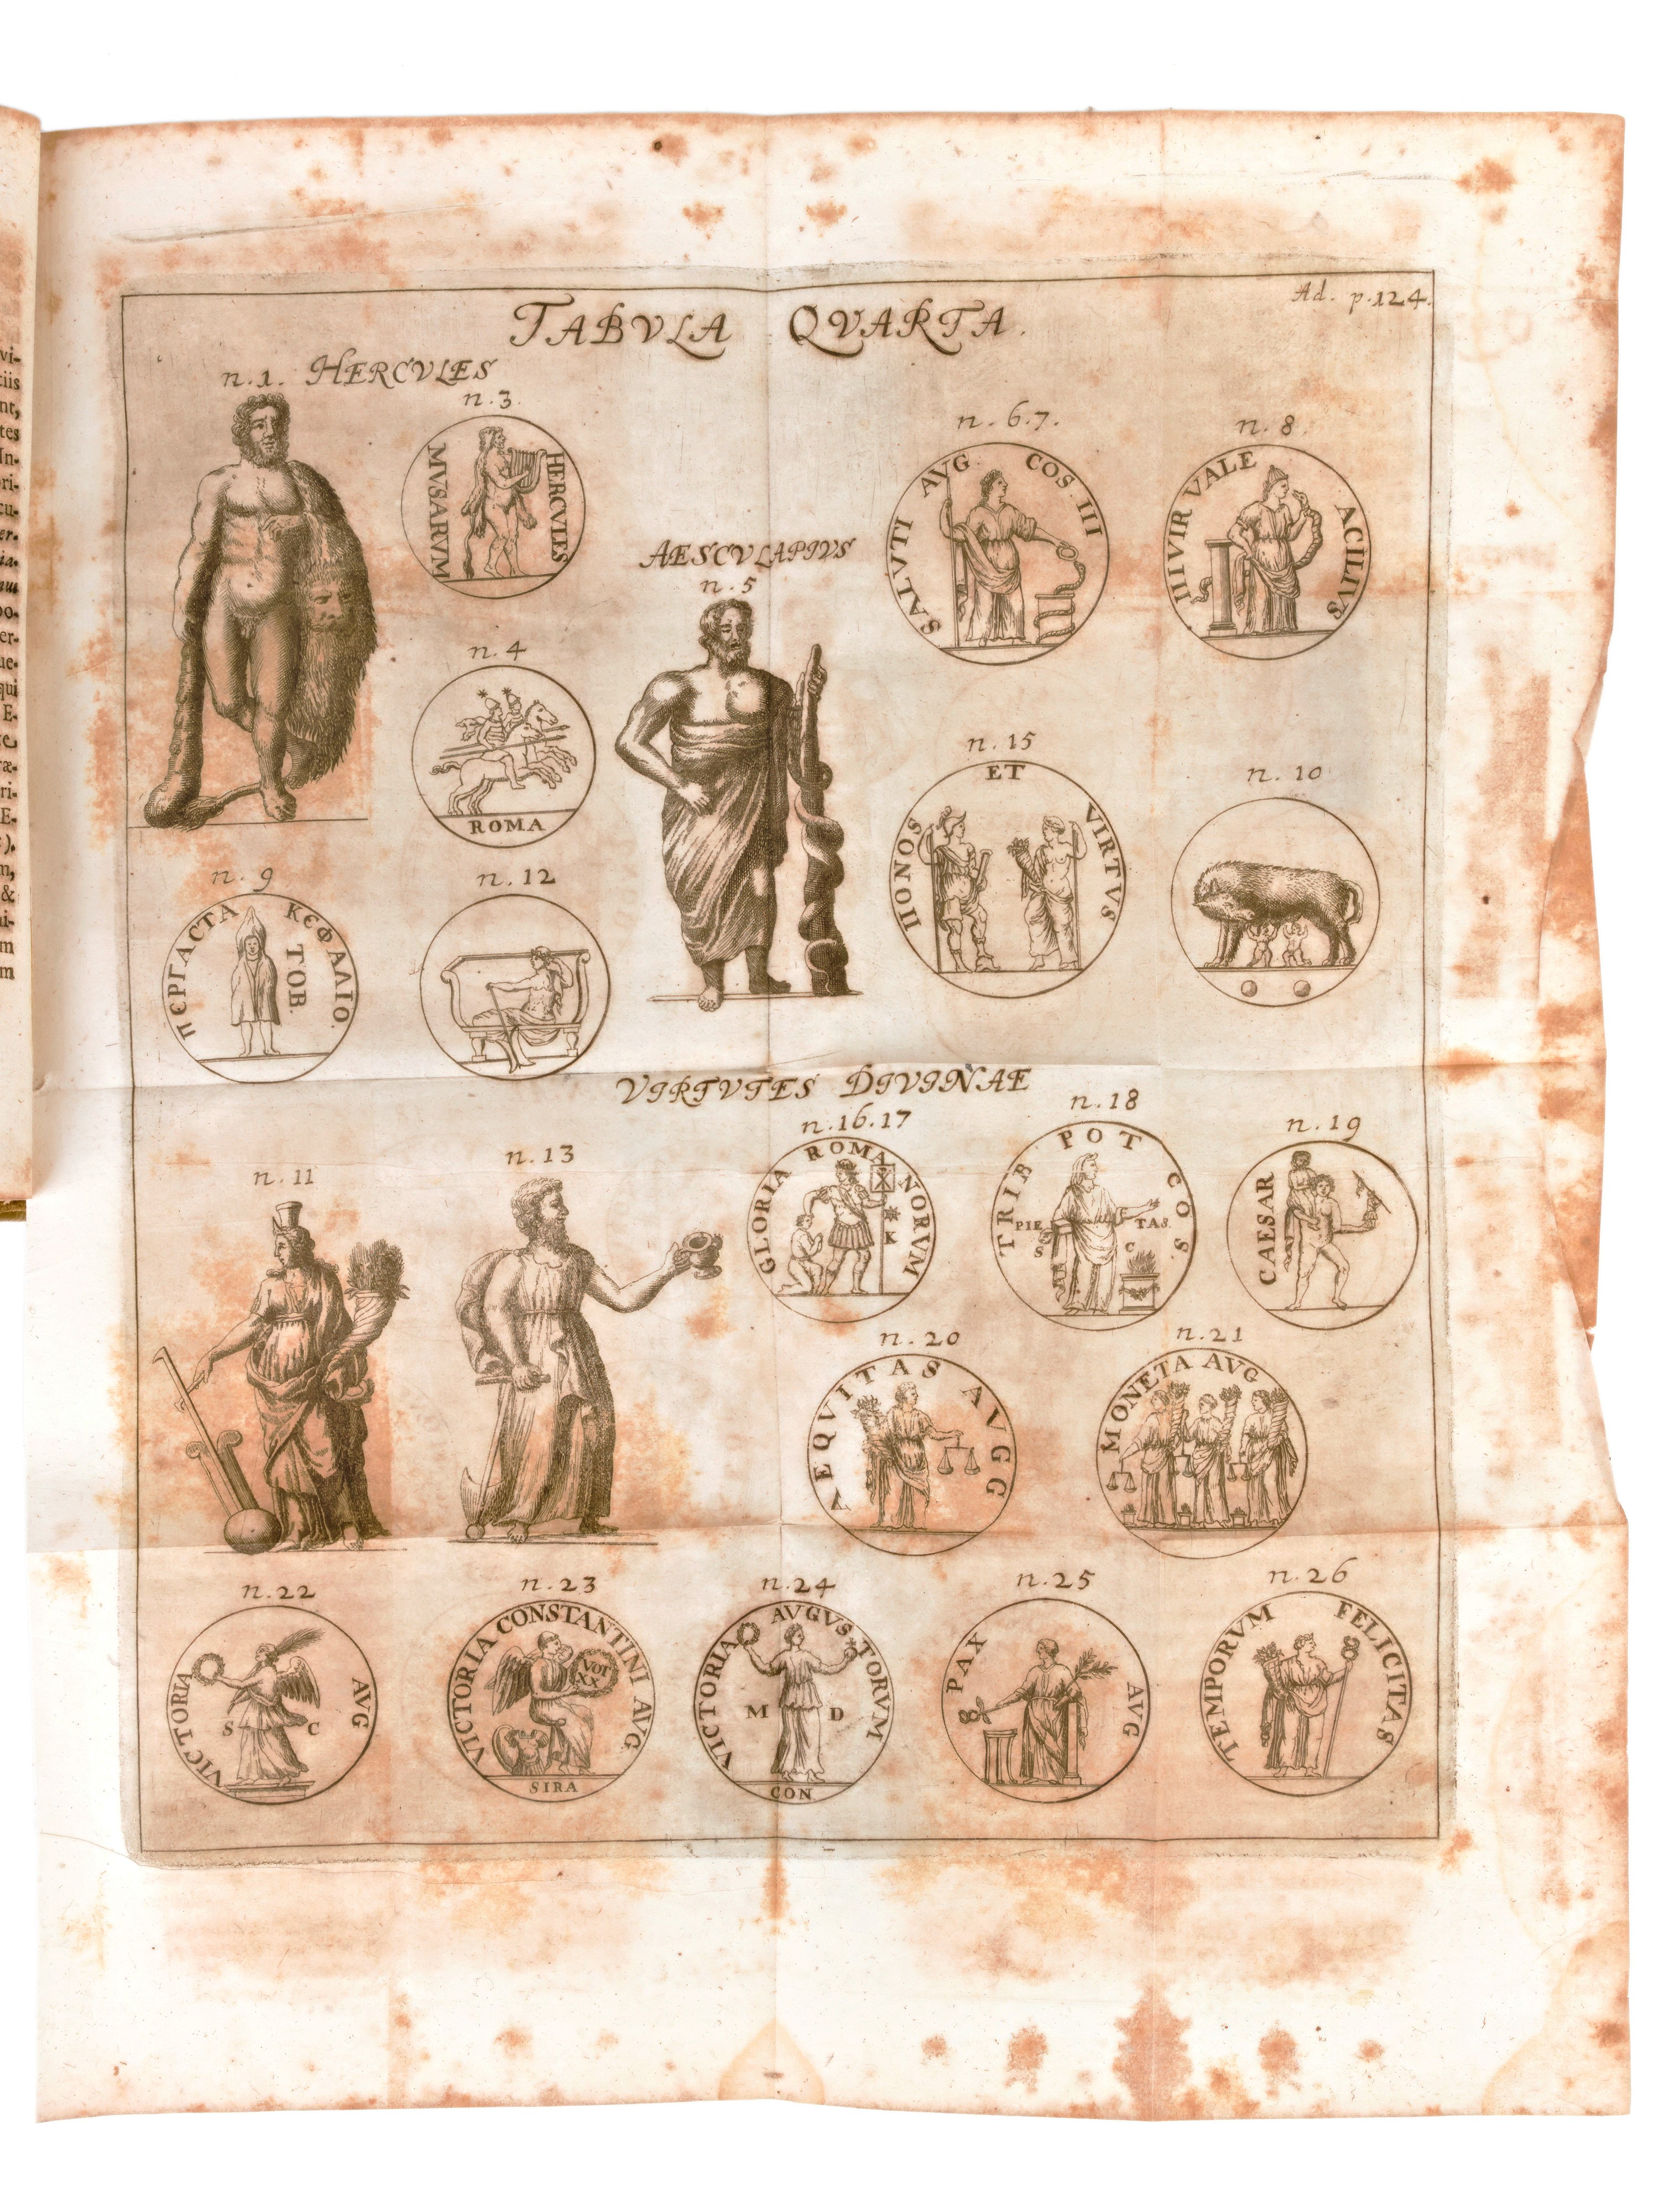 Ad. p. 124.
TABVLA QVARTA.
n. 1. HERCVLES
n. 3.
HERCVLES
MVSARVM
n. 6. 7.
SALVTI AVG COS. III
n. 8.
IIIVIR VALE ACILIVS
n. 4
ROMA
AESCVLAPIVS
n. 5
n. 15
HONOS ET VIRTVS
n. 10
n. 9
ΠЄΡΓΑСΤΑ ΚЄΦΑΛΙΟ.
ΤΟΒ.
n. 12
VIRTVTES DIVINAE
n. 11
n. 13
n. 16. 17
GLORIA ROMANORVM
K
n. 18
TRIB POT COS.
PIE TAS.
S C
n. 19
CAESAR
n. 20
AEQVITAS AVGG
n. 21
MONETA AVG
n. 22
VICTORIA AVG
S C
n. 23
VICTORIA CONSTANTINI AVG.
VOT
XX
SIRA
n. 24
VICTORIA AVGVSTORVM
M D
CON
n. 25
PAX AVG
n. 26
TEMPORVM FELICITAS